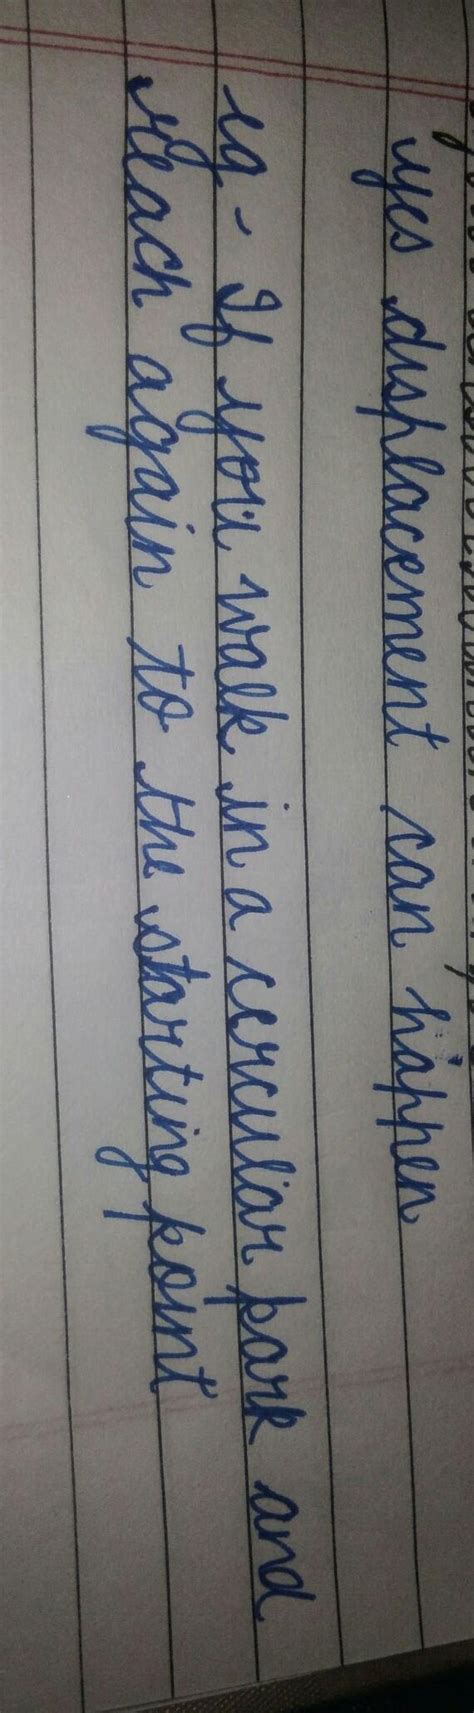 yes displacement can happen
eg - If you walk in a cercular park and
reach again to the starting point